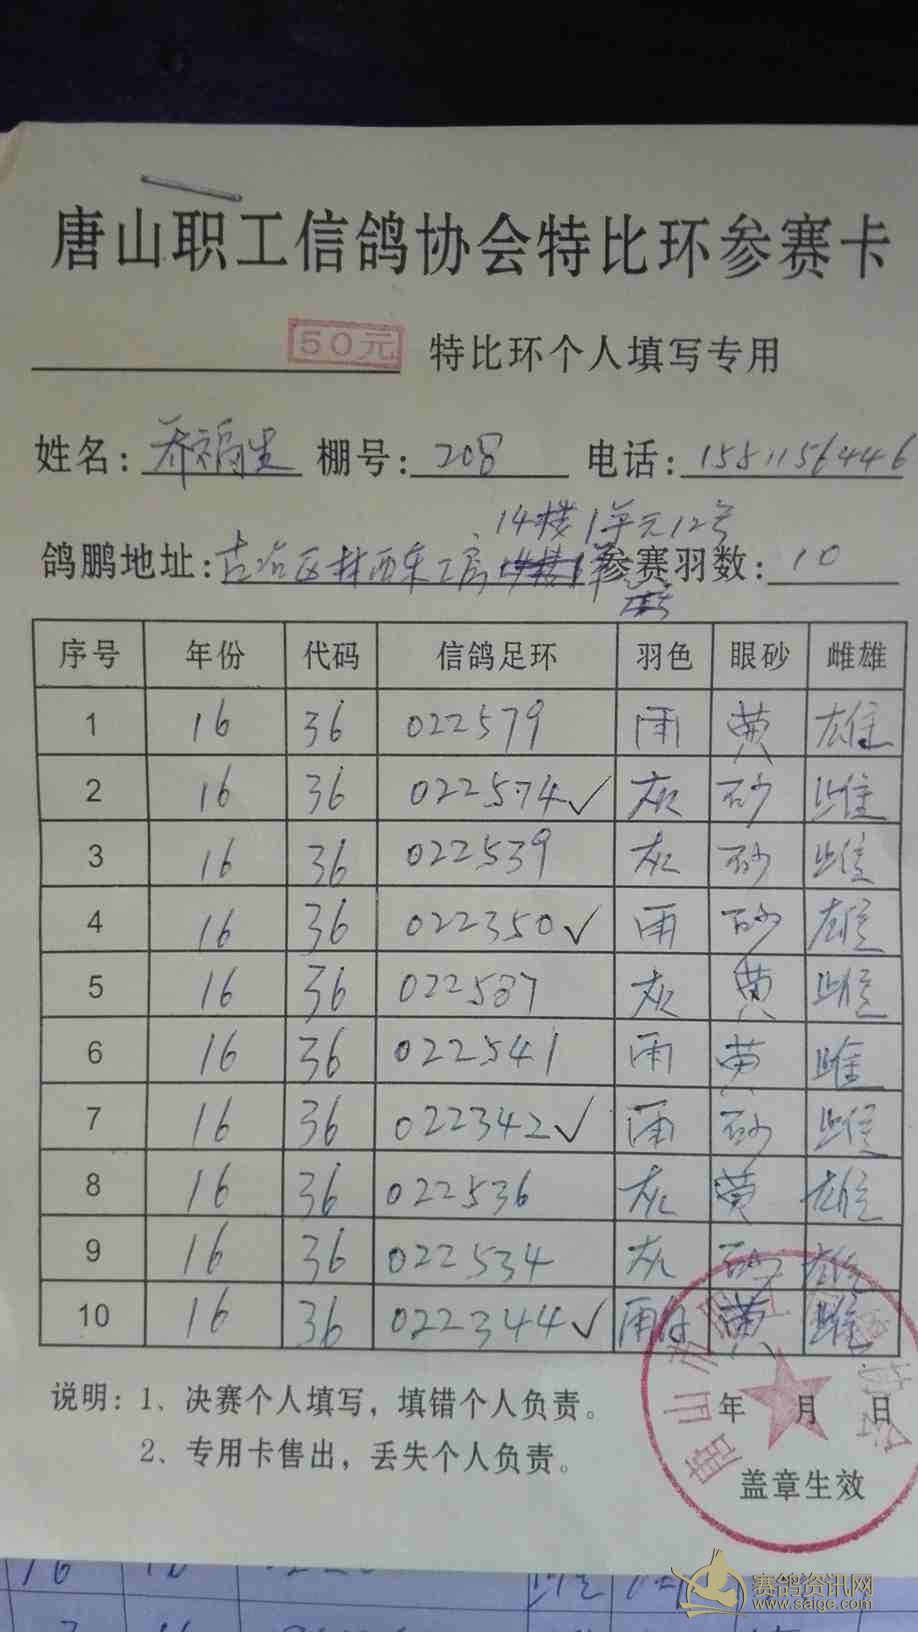 唐山职工信鸽协会特比环参赛卡
50元 特比环个人填写专用
姓名: 乔福贵 棚号: 208 电话: 15811564446
14楼1单元12号
鸽鹏地址: 古冶区林西东工房 参赛羽数: 10
序号 年份 代码 信鸽足环 羽色 眼砂 雌雄
1 16 36 022579 雨 黄 雄
2 16 36 022574✓ 灰 砂 雌
3 16 36 022539 灰 砂 雌
4 16 36 022350✓ 雨 砂 雄
5 16 36 022587 灰 黄 雌
6 16 36 022541 雨 黄 雌
7 16 36 022342✓ 雨 砂 雌
8 16 36 022536 灰 黄 雄
9 16 36 022534 灰 砂 雄
10 16 36 022344✓ 雨白 黄 雌
说明: 1、决赛个人填写，填错个人负责。 年 月 日
2、专用卡售出，丢失个人负责。
盖章生效
唐山市职工
16
赛鸽资讯网
www.saige.com